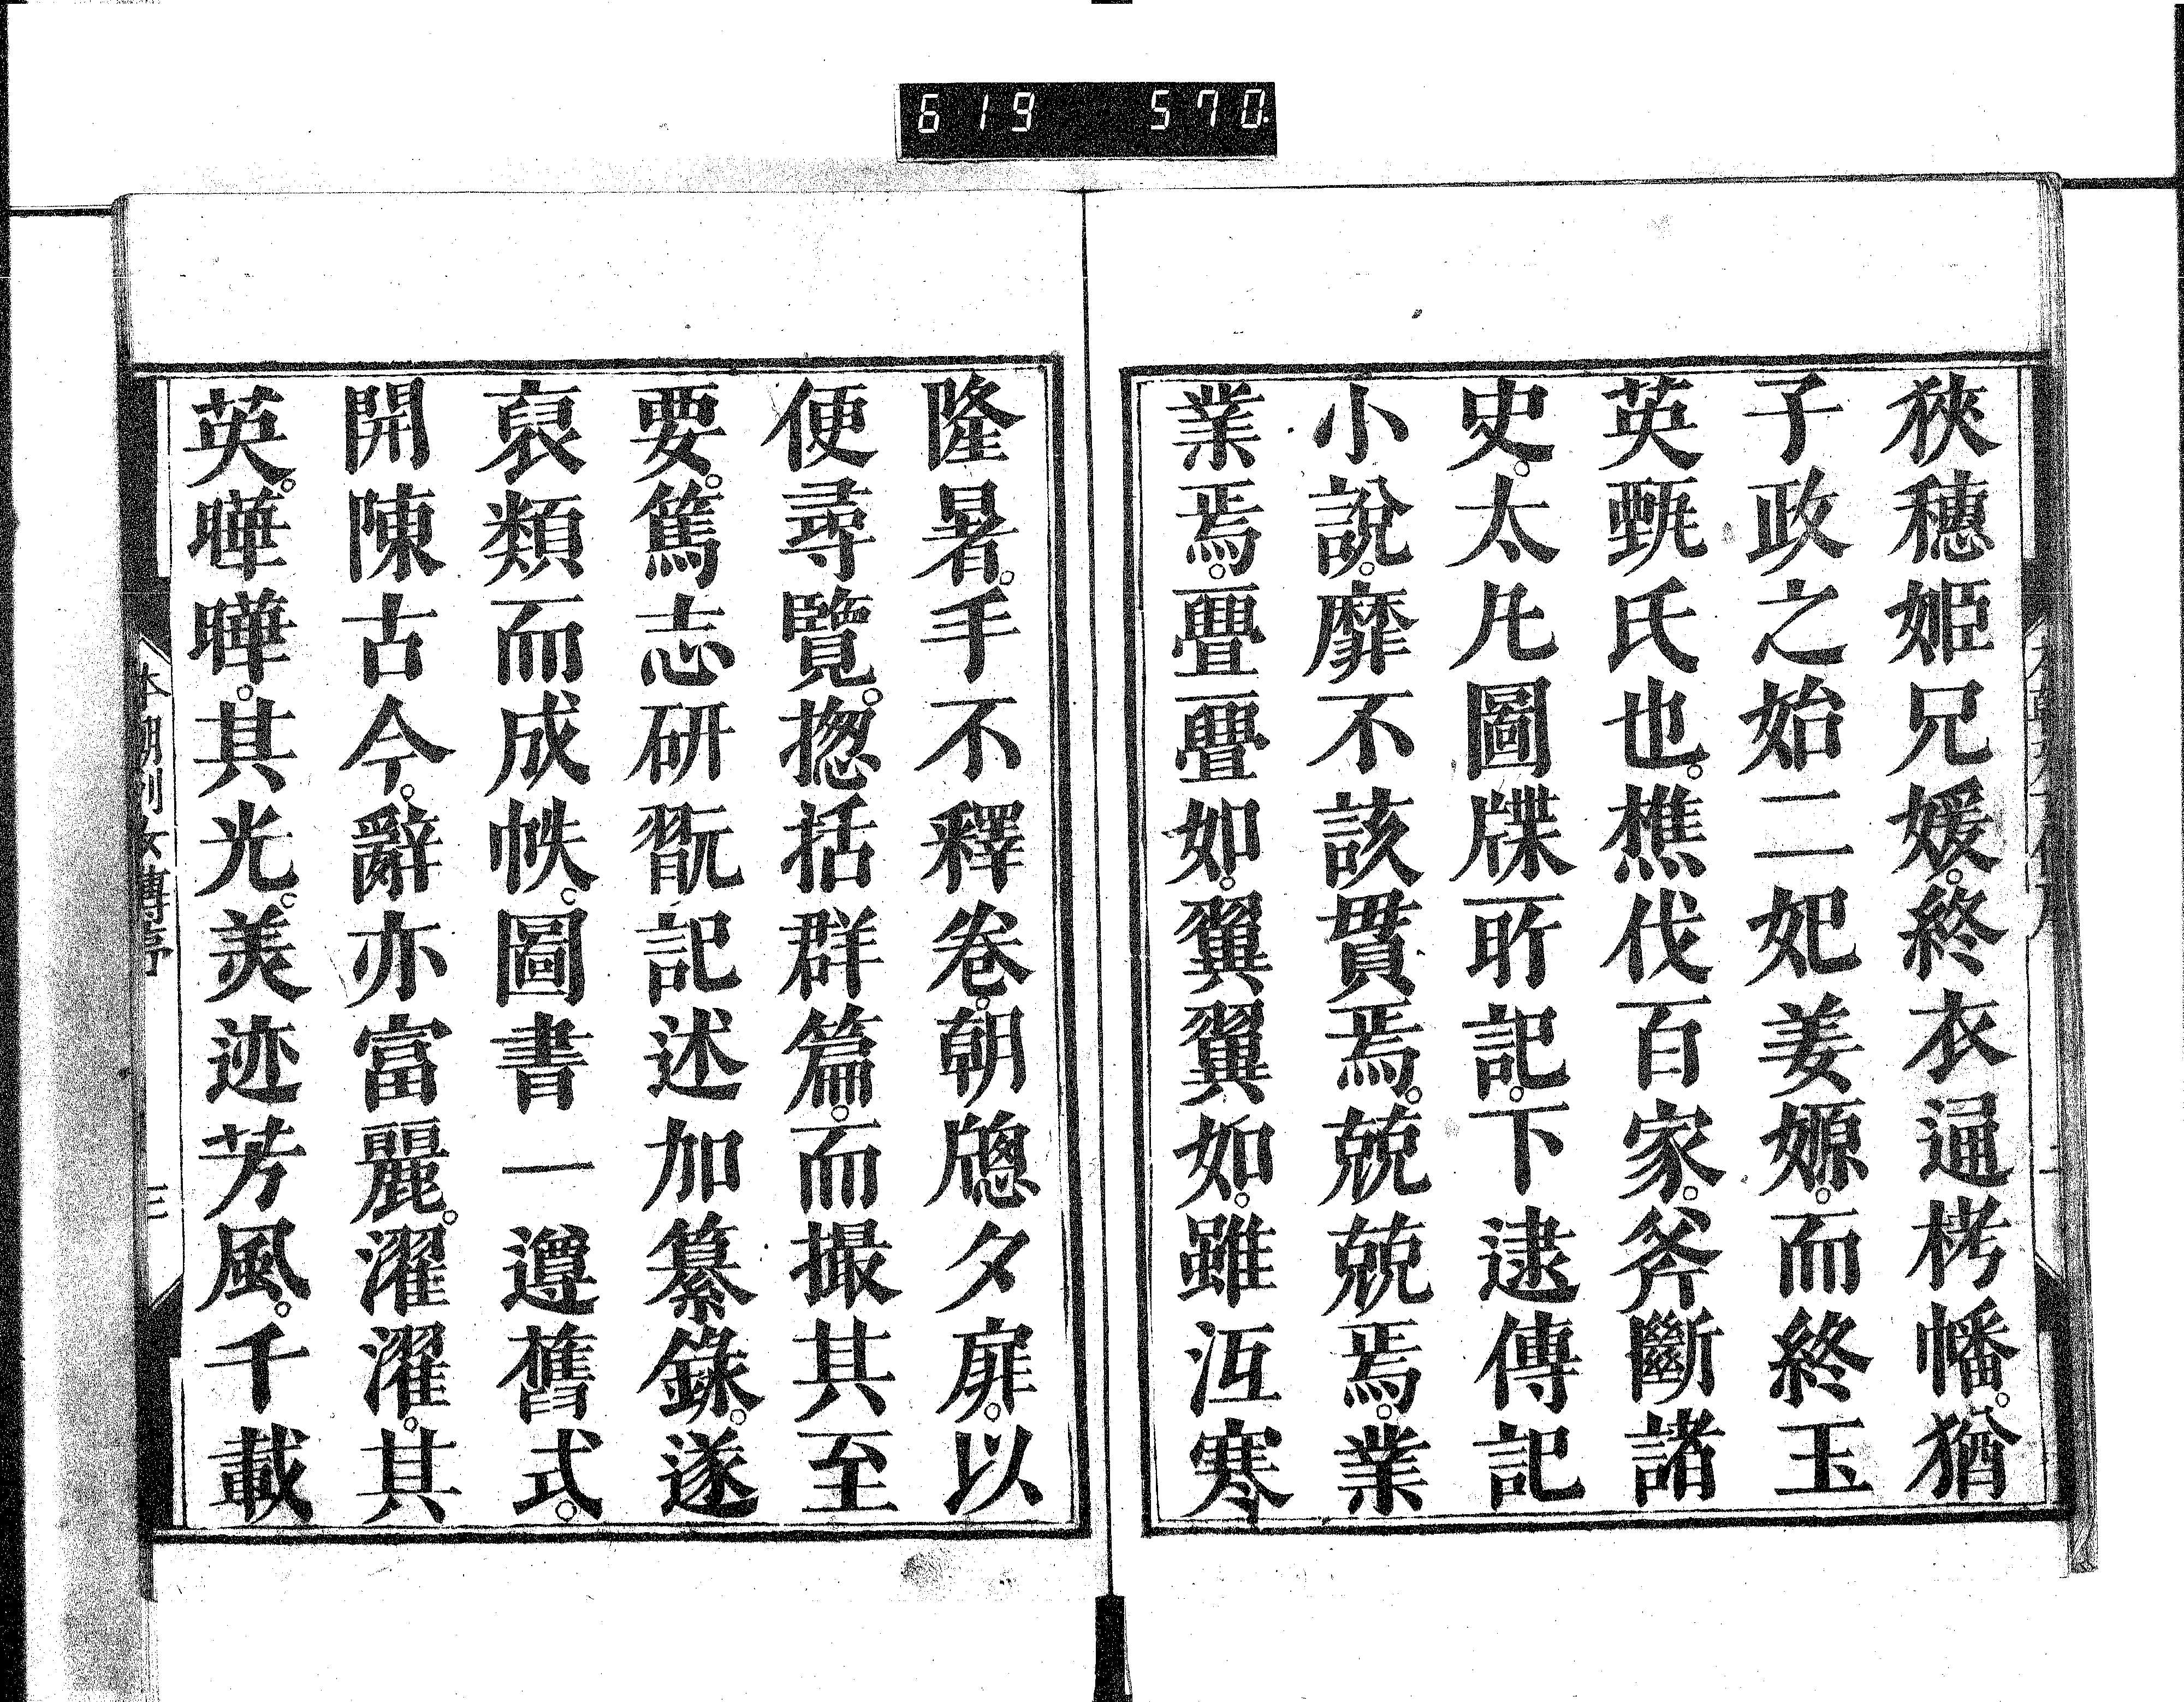 619 570
狹穗姬兄媛。終衣通栲幡。猶
子政之始二妃姜嫄。而終玉
英甄氏也。樵伐百家。斧斷諸
史。太凡圖牒所記。下逮傳記
小說。靡不該貫焉。兢兢焉。業
業焉。亹亹如。翼翼如。雖沍寒
隆暑。手不釋卷。朝牕夕扉。以
便尋覽。揔括群篇。而撮其至
要。篤志研翫記述加纂錄。遂
裒類而成帙。圖書一遵舊式。
開陳古今。辭亦富麗。濯濯。其
英。曄曄。其光。美迹芳風。千載
本朝列女傳序
三